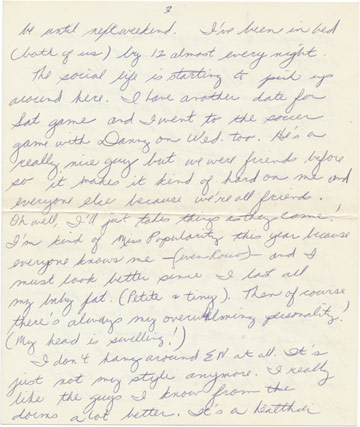 3
be until next weekend. I've been in bed
(both of us) by 12 almost every night.
The social life is starting to pick up
around here. I have another date for
Sat game and I went to the soccer
game with Danny on Wed. too. He's a
really nice guy but we were friends before
so it makes it kind of hard on me and
everyone else because we're all friends.
Oh well, I'll just take things as they come!
I'm kind of Miss Popularity this year because
everyone knows me - (even )- and I
must look better since I lost all
my baby fat. (Petite & tiny). Then of course
there's always my overwhelming personality!
(My head is swelling!)
I don't hang around EN at all. It's
just not my style anymore. I really
like the guys I know from the
dorms a lot better. It's a healthier